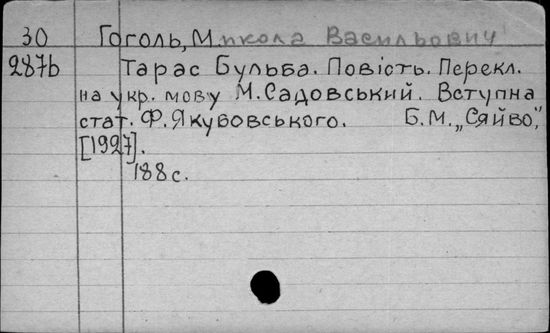 30 Гоголь, Микола Васильович
287b Тарас Бульба. Повість. Перекл.
на укр. мову М. Садовський. Вступна
стат. Ф. Якубовського. Б.М. „Сяйво",
[1927].
188 с.